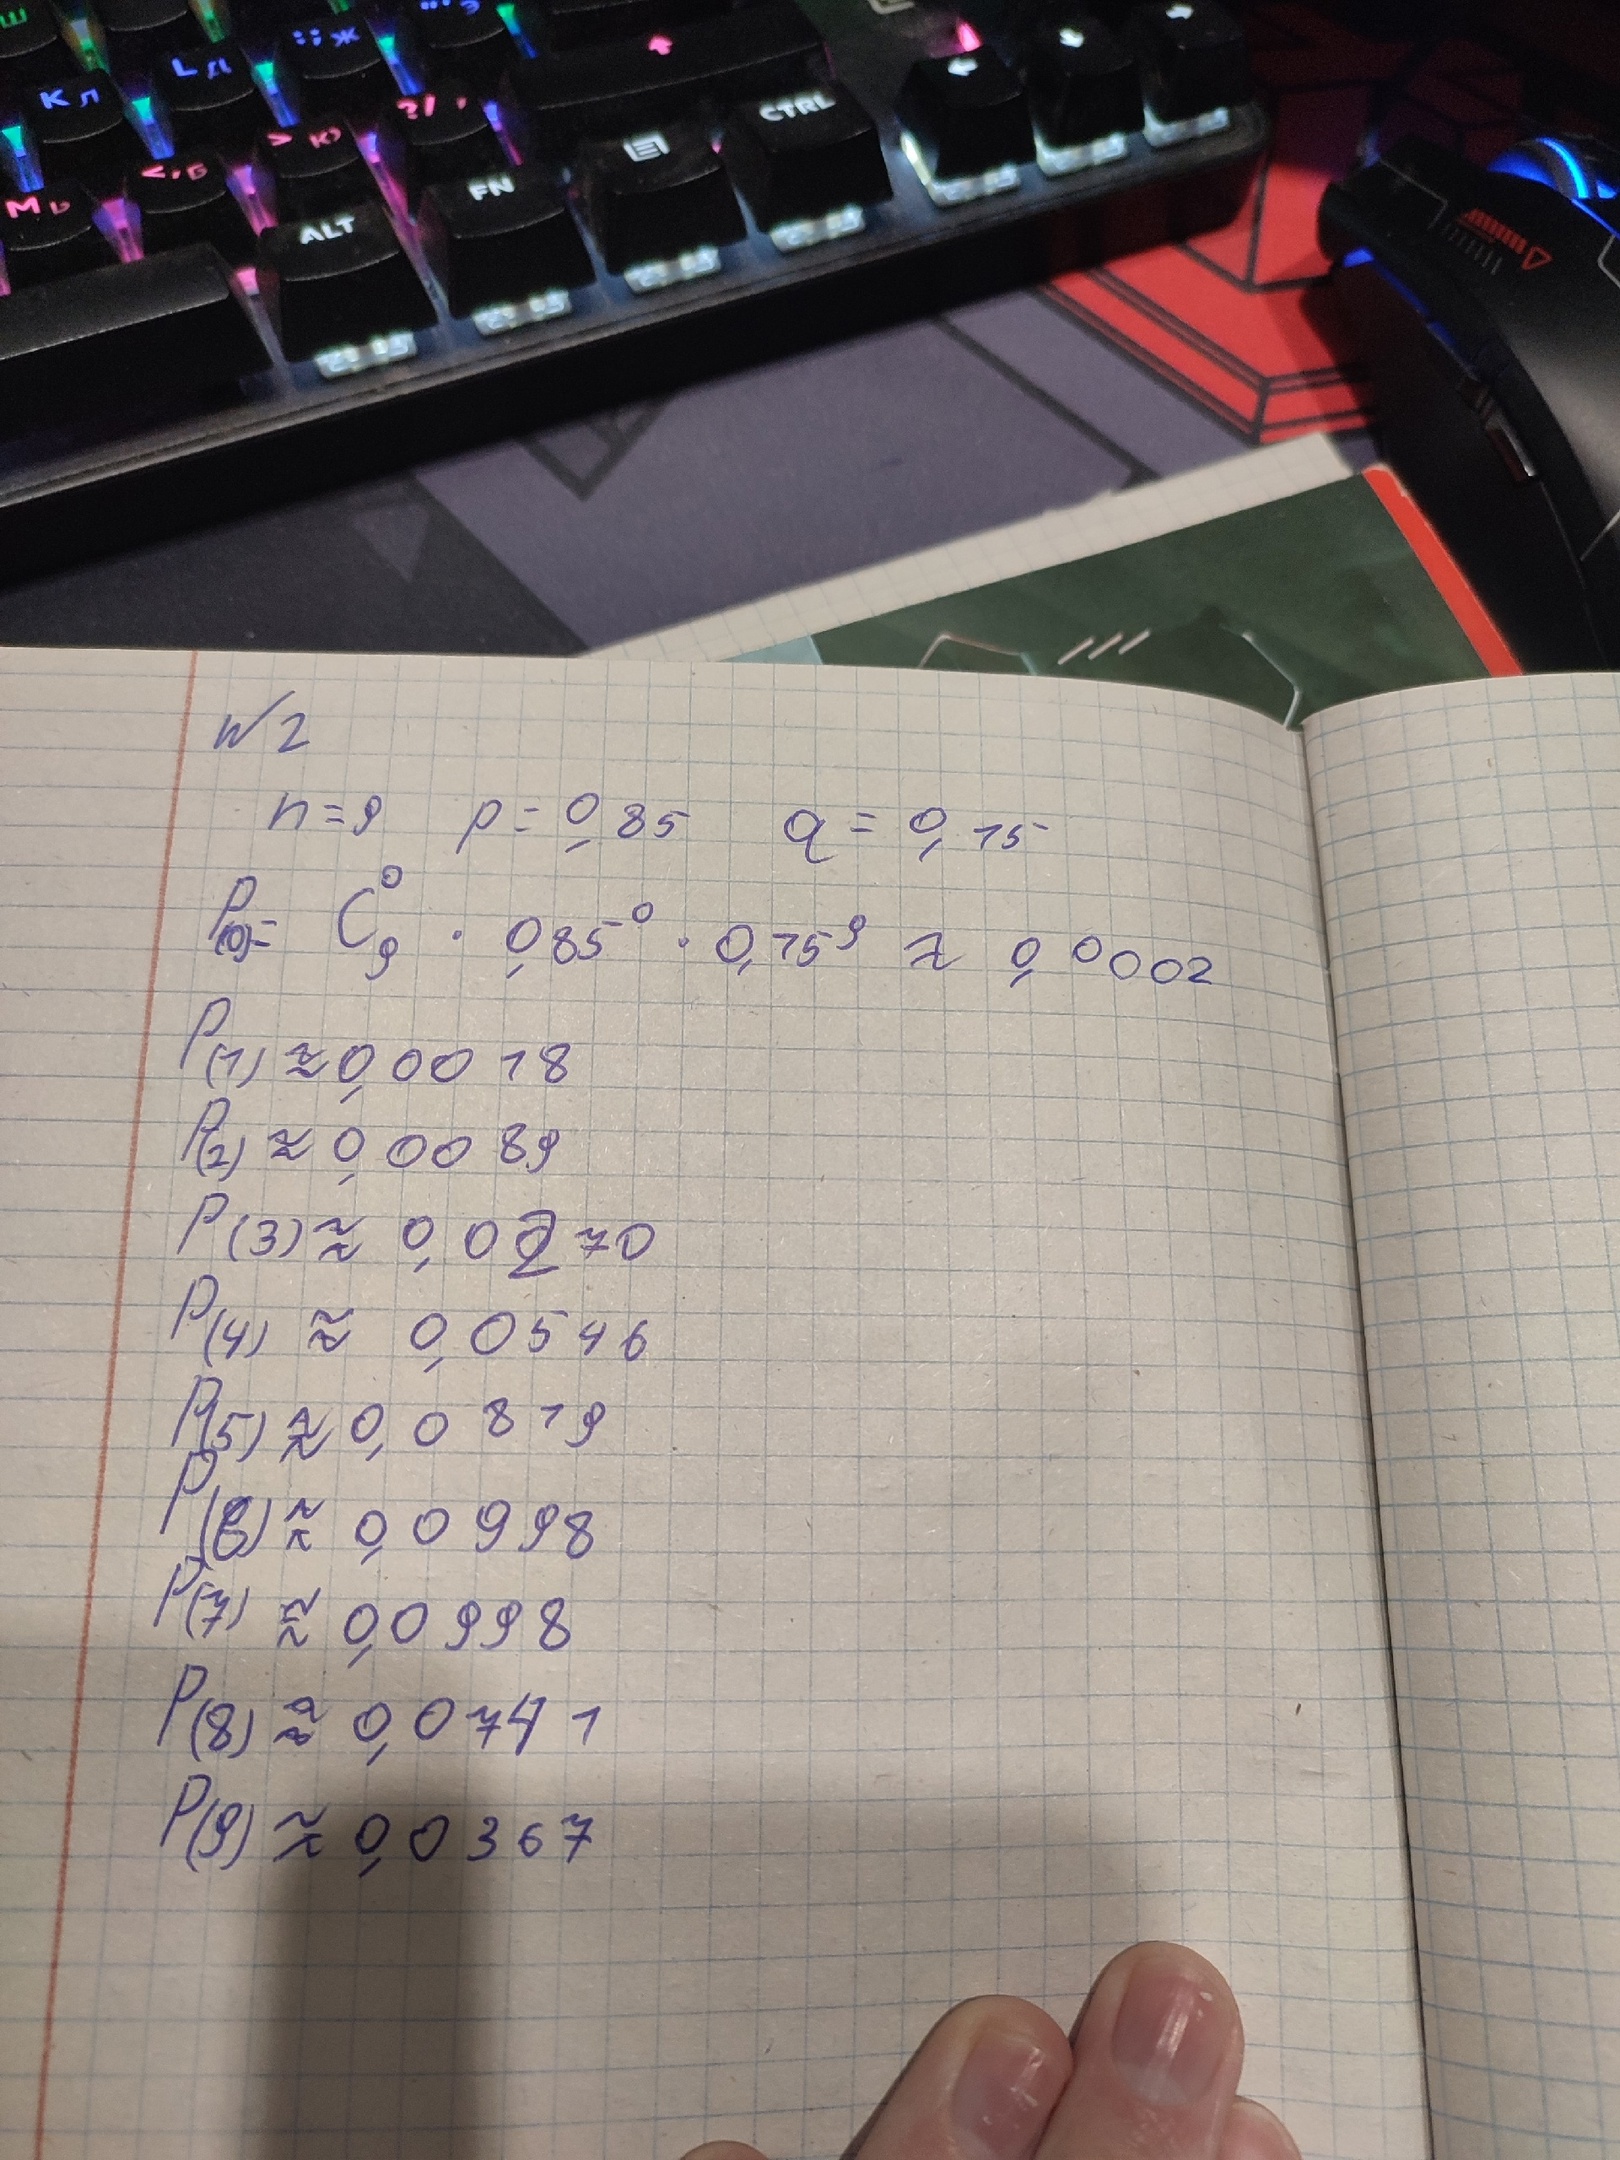 Ш
K Л
L Д
: ; Ж
" ' Э
М Ь
< , Б
> . Ю
? / ,
ALT
FN
CTRL
№2
n=9 p=0,85 q=0,15
P(0)= C₉⁰ · 0,85⁰ · 0,15⁹ ≈ 0,0002
P(1) ≈ 0,0018
P(2) ≈ 0,0089
P(3) ≈ 0,0270
P(4) ≈ 0,0546
P(5) ≈ 0,0819
P(6) ≈ 0,0998
P(7) ≈ 0,0998
P(8) ≈ 0,0741
P(9) ≈ 0,0367